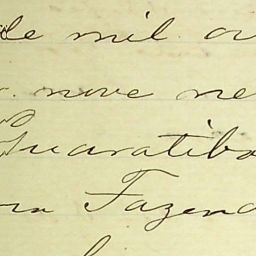 de mil
nove
Guaratiba
Fazend